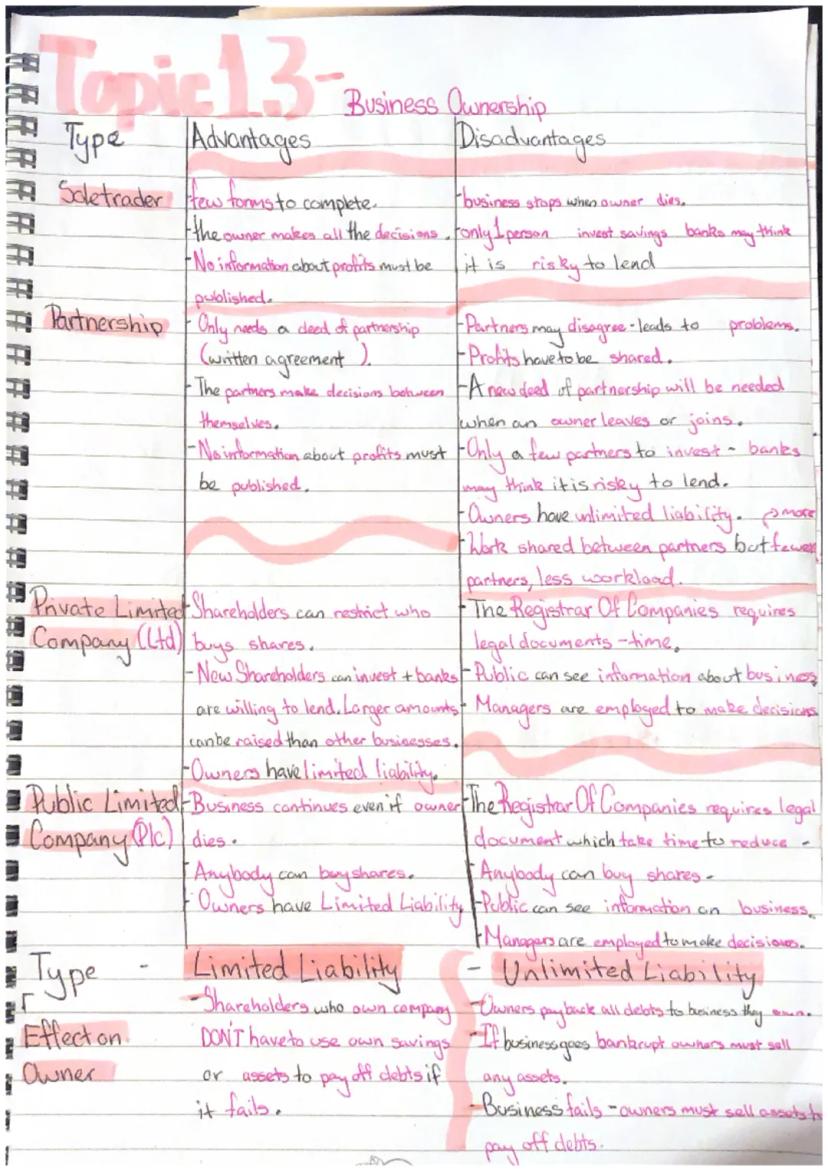 Topic 1.3-
Business Ownership
Type
Advantages
Disadvantages
Soletrader
few forms to complete.
- the owner makes all the decisions.
- No information about profits must be
published.
- business stops when owner dies.
- only 1 person invest savings banks may think
it is risky to lend
Partnership
- Only needs a deed of partnership
(written agreement ).
- The partners make decisions between
themselves.
- No information about profits must
be published.
- Partners may disagree - leads to problems.
- Profits have to be shared.
- A new deed of partnership will be needed
when an owner leaves or joins.
- Only a few partners to invest - banks
may think it is risky to lend.
- Owners have unlimited liability. more
- Work shared between partners but fewer
partners, less workload.
Private Limited
Company (Ltd)
- Shareholders can restrict who
buys shares.
- New Shareholders can invest + banks
are willing to lend. Larger amounts
can be raised than other businesses.
- Owners have limited liability.
- The Registrar Of Companies requires
legal documents - time.
- Public can see information about business
- Managers are employed to make decisions
Public Limited
Company (Plc)
- Business continues even if owner
dies.
- Anybody can buy shares.
- Owners have Limited Liability
- The Registrar Of Companies requires legal
document which take time to reduce -
- Anybody can buy shares -
- Public can see information on business.
- Managers are employed to make decisions.
Type -
Limited Liability
- Unlimited Liability
Effect on
Owner
- Shareholders who own company
DON'T have to use own savings
or assets to pay off debts if
it fails.
- Owners pay back all debts to business they own.
- If business goes bankrupt owners must sell
any assets.
- Business fails - owners must sell assets to
pay off debts.